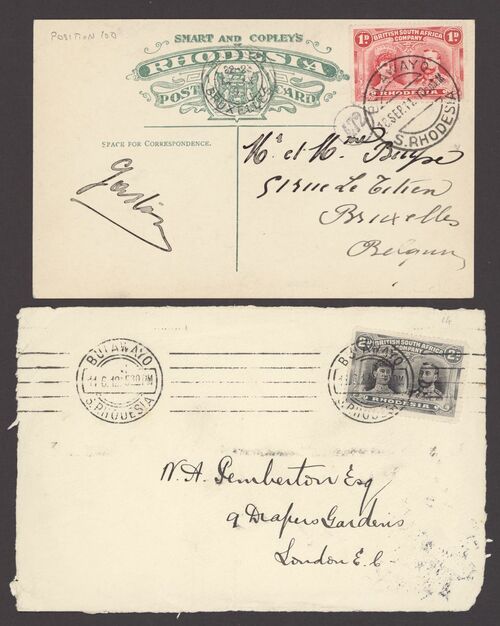 POSITION 100
SMART AND COPLEY'S
RHODESIA
POST CARD
1D BRITISH SOUTH AFRICA COMPANY 1D
RHODESIA
S. RHODESIA
SPACE FOR CORRESPONDENCE.
Gaston
Mr et Mme Buyse
51 rue Le Titien
Bruxelles
Belgium
BULAWAYO
11 6 12 530PM
S. RHODESIA
BULAWAYO
S. RHODESIA
2D BRITISH SOUTH AFRICA COMPANY 2D
RHODESIA
W. A. Pemberton Esq
9 Drapers Gardens
London E.C.